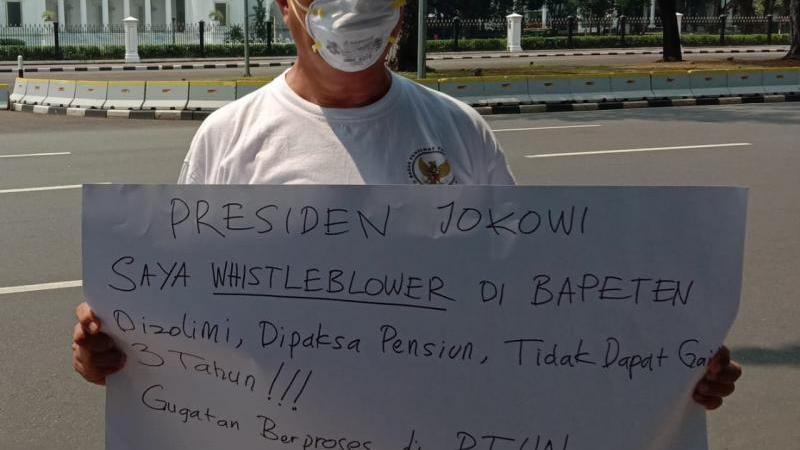 PRESIDEN JOKOWI
SAYA WHISTLEBLOWER DI BAPETEN
Dizolimi, Dipaksa Pensiun, Tidak Dapat
3 Tahun!!!
Gugatan Berproses di PTUN